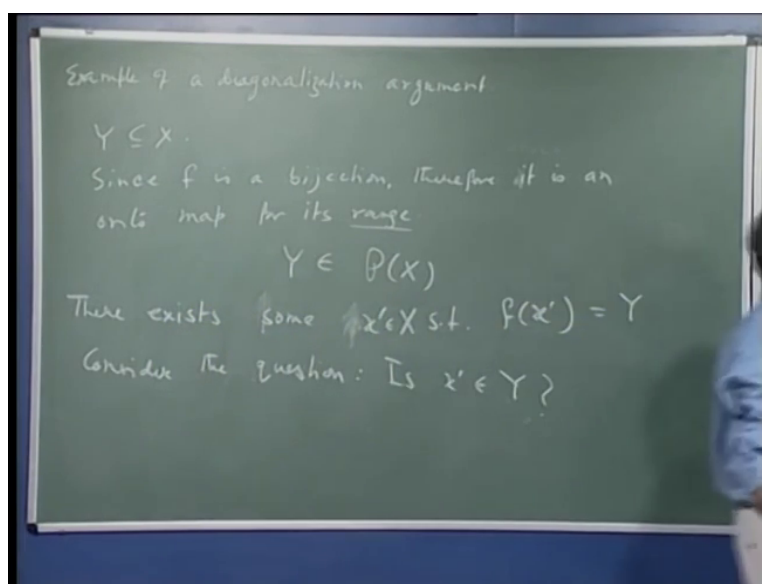 Example of a diagonalization argument.
Y ⊆ X.
Since f is a bijection, therefore it is an
onto map for its range.
Y ∈ P(X)
There exists some x'∈X s.t. f(x') = Y
Consider the question: Is x' ∈ Y ?